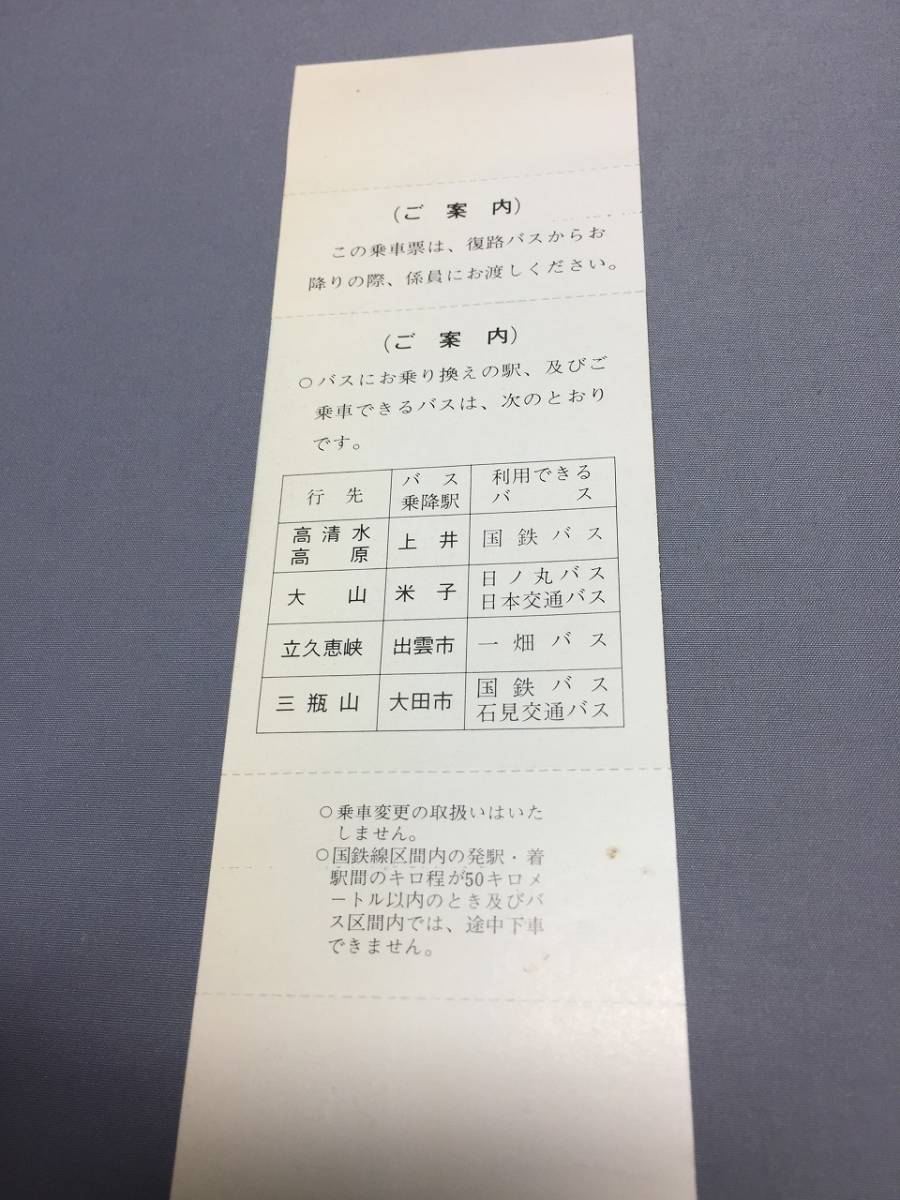 (ご案内)
この乗車票は、復路バスからお
降りの際、係員にお渡しください。
(ご案内)
○バスにお乗り換えの駅、及びご
乗車できるバスは、次のとおり
です。
行先 バス乗降駅 利用できるバス
高清水高原 上井 国鉄バス
大山 米子 日ノ丸バス 日本交通バス
立久恵峡 出雲市 一畑バス
三瓶山 大田市 国鉄バス 石見交通バス
○乗車変更の取扱いはいた
しません。
○国鉄線区間内の発駅・着
駅間のキロ程が50キロメ
ートル以内のとき及びバ
ス区間内では、途中下車
できません。